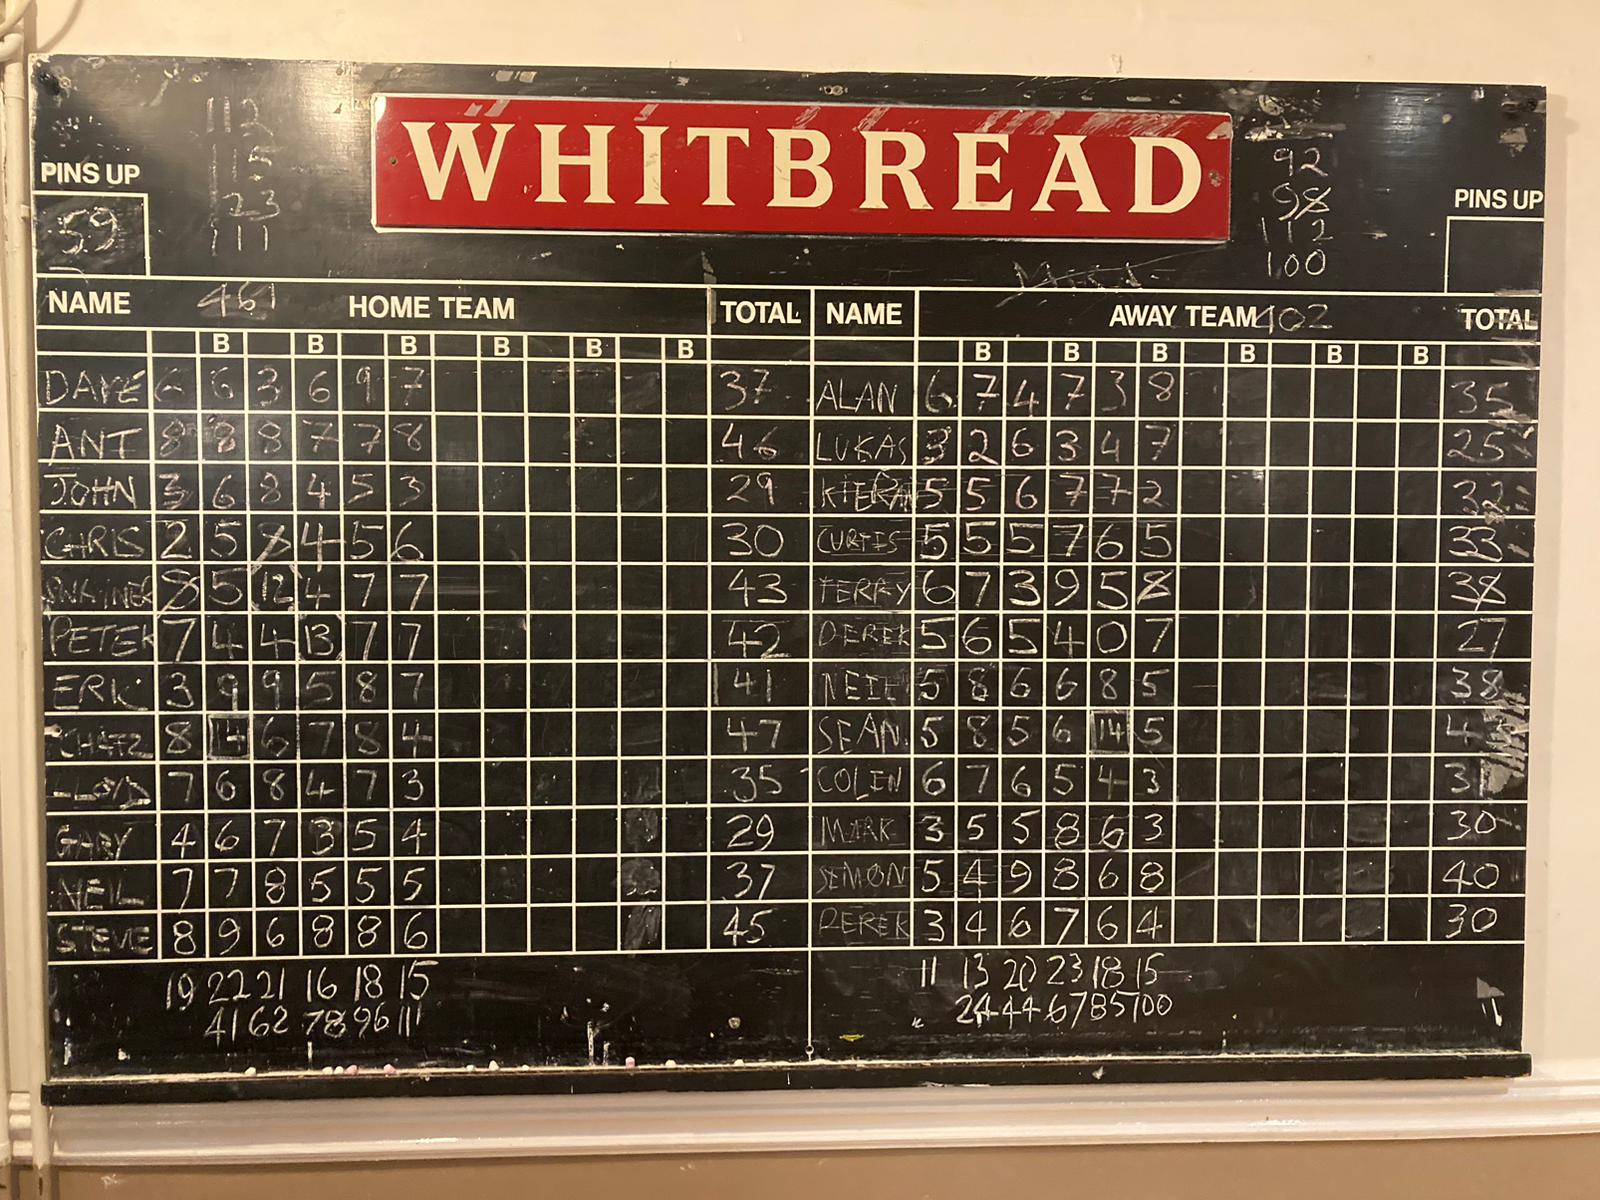 WHITBREAD
PINS UP
59
112
115
123
111
92
98
112
100
PINS UP
NAME 461 HOME TEAM TOTAL NAME AWAY TEAM 402 TOTAL
B B B B B B B B B B B B
DAVE 6 6 3 6 9 7 37 ALAN 6 7 4 7 3 8 35
ANT 8 8 8 7 7 8 46 LUKAS 3 2 6 3 4 7 25
JOHN 3 6 8 4 5 3 29 KIERAN 5 5 6 7 7 2 32
CHRIS 2 5 8 4 5 6 30 CURTIS 5 5 5 7 6 5 33
8 5 12 4 7 7 43 TERRY 6 7 3 9 5 8 38
PETER 7 4 4 13 7 7 42 DEREK 5 6 5 4 0 7 27
ERK 3 9 9 5 8 7 41 NEIL 5 8 6 6 8 5 38
8 14 6 7 8 4 47 SEAN 5 8 5 6 14 5 4
LLOYD 7 6 8 4 7 3 35 COLIN 6 7 6 5 4 3 31
GARY 4 6 7 3 5 4 29 MARK 3 5 5 8 6 3 30
NEIL 7 7 8 5 5 5 37 SIMON 5 4 9 8 6 8 40
STEVE 8 9 6 8 8 6 45 DEREK 3 4 6 7 6 4 30
19 22 21 16 18 15 11 13 20 23 18 15
41 62 78 96 111 24 44 67 85 100